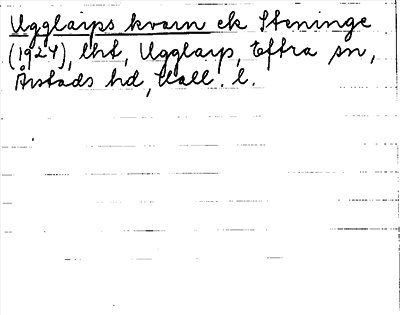 Ugglarps kvarn ek Steninge
(1927), lht, Ugglarp, Eftra sn,
Årstads hd, Hall. l.